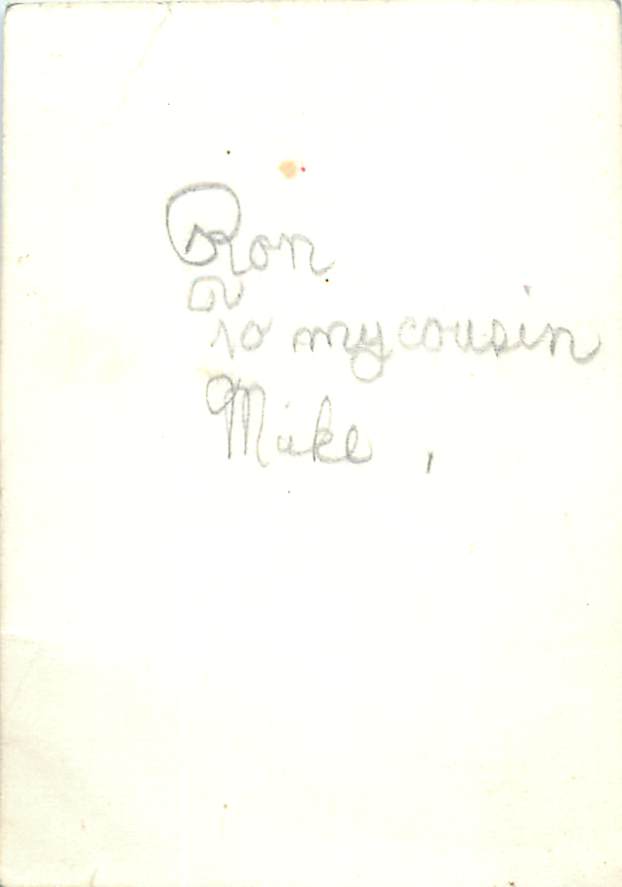 Ron
To my cousin
Mike,